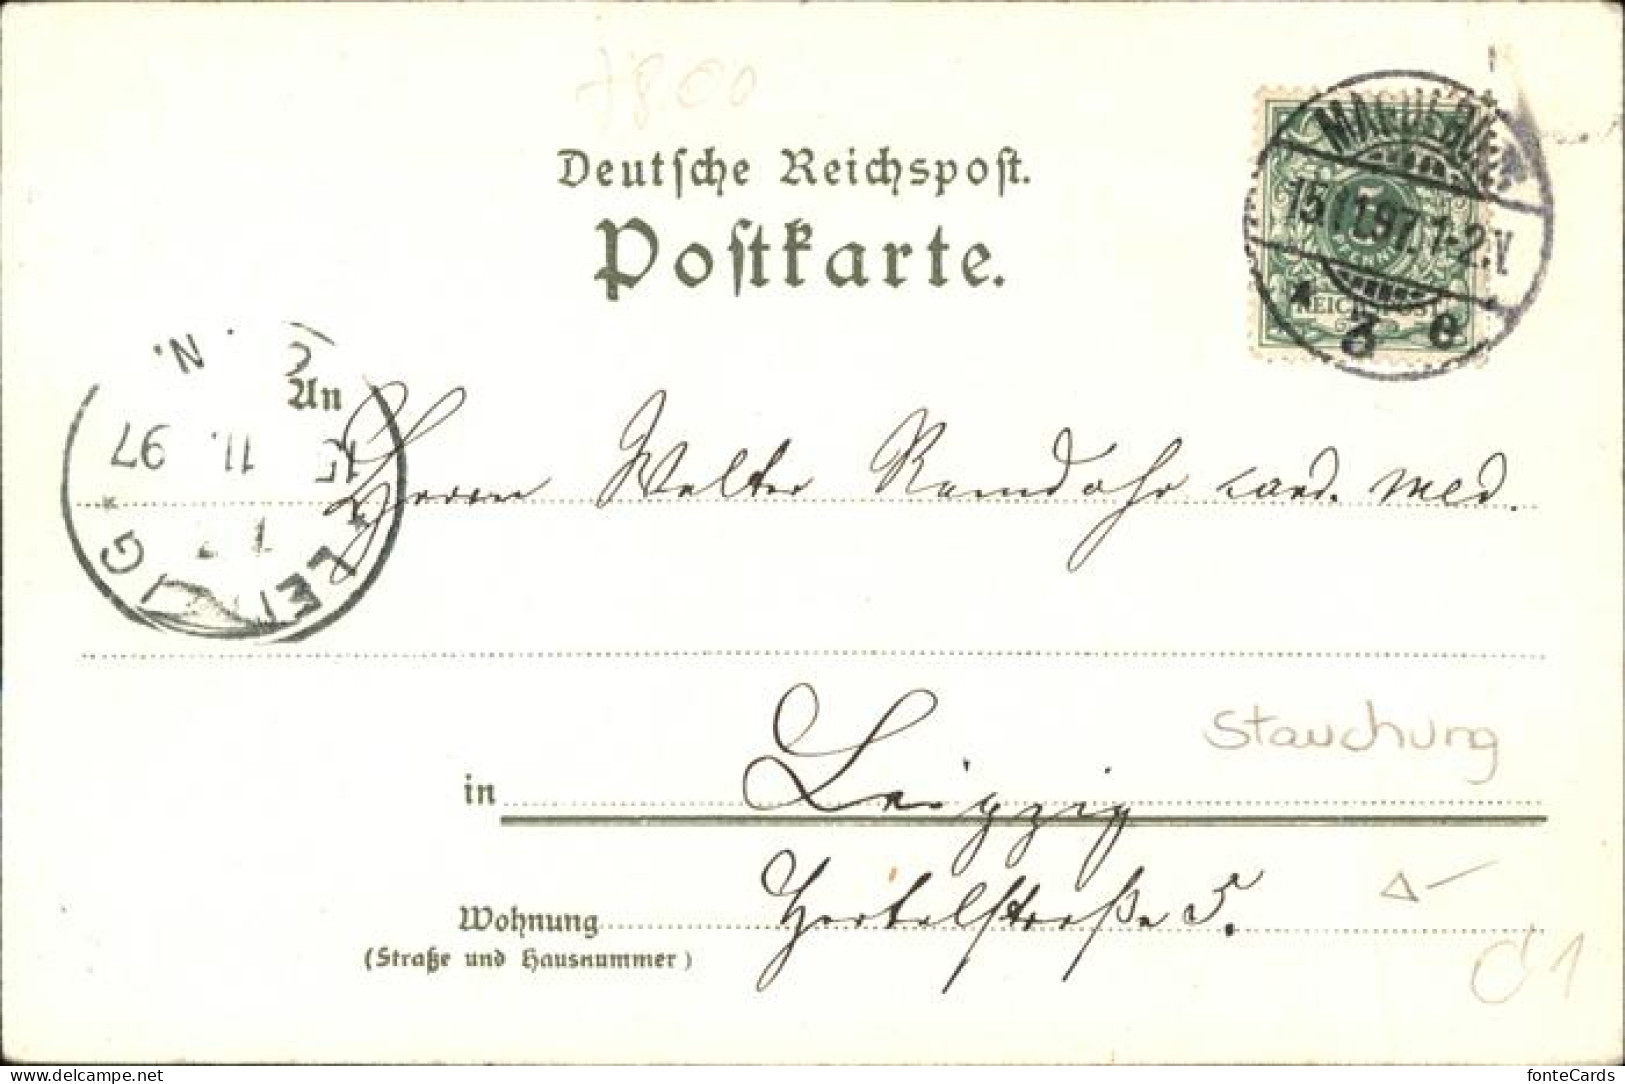 7800
Deutsche Reichspost.
Postkarte.
MAGDEBURG
15.11.97. 1-2.V
* 3 c
5
REICHSPOST
N.
An
15. 11. 97
LEIPZIG
Herrn Walter Randohr cand. med.
in Leipzig
Stauchung
Wohnung Hertelstraße 5.
(Straße und Hausnummer)
www.delcampe.net
fonteCards